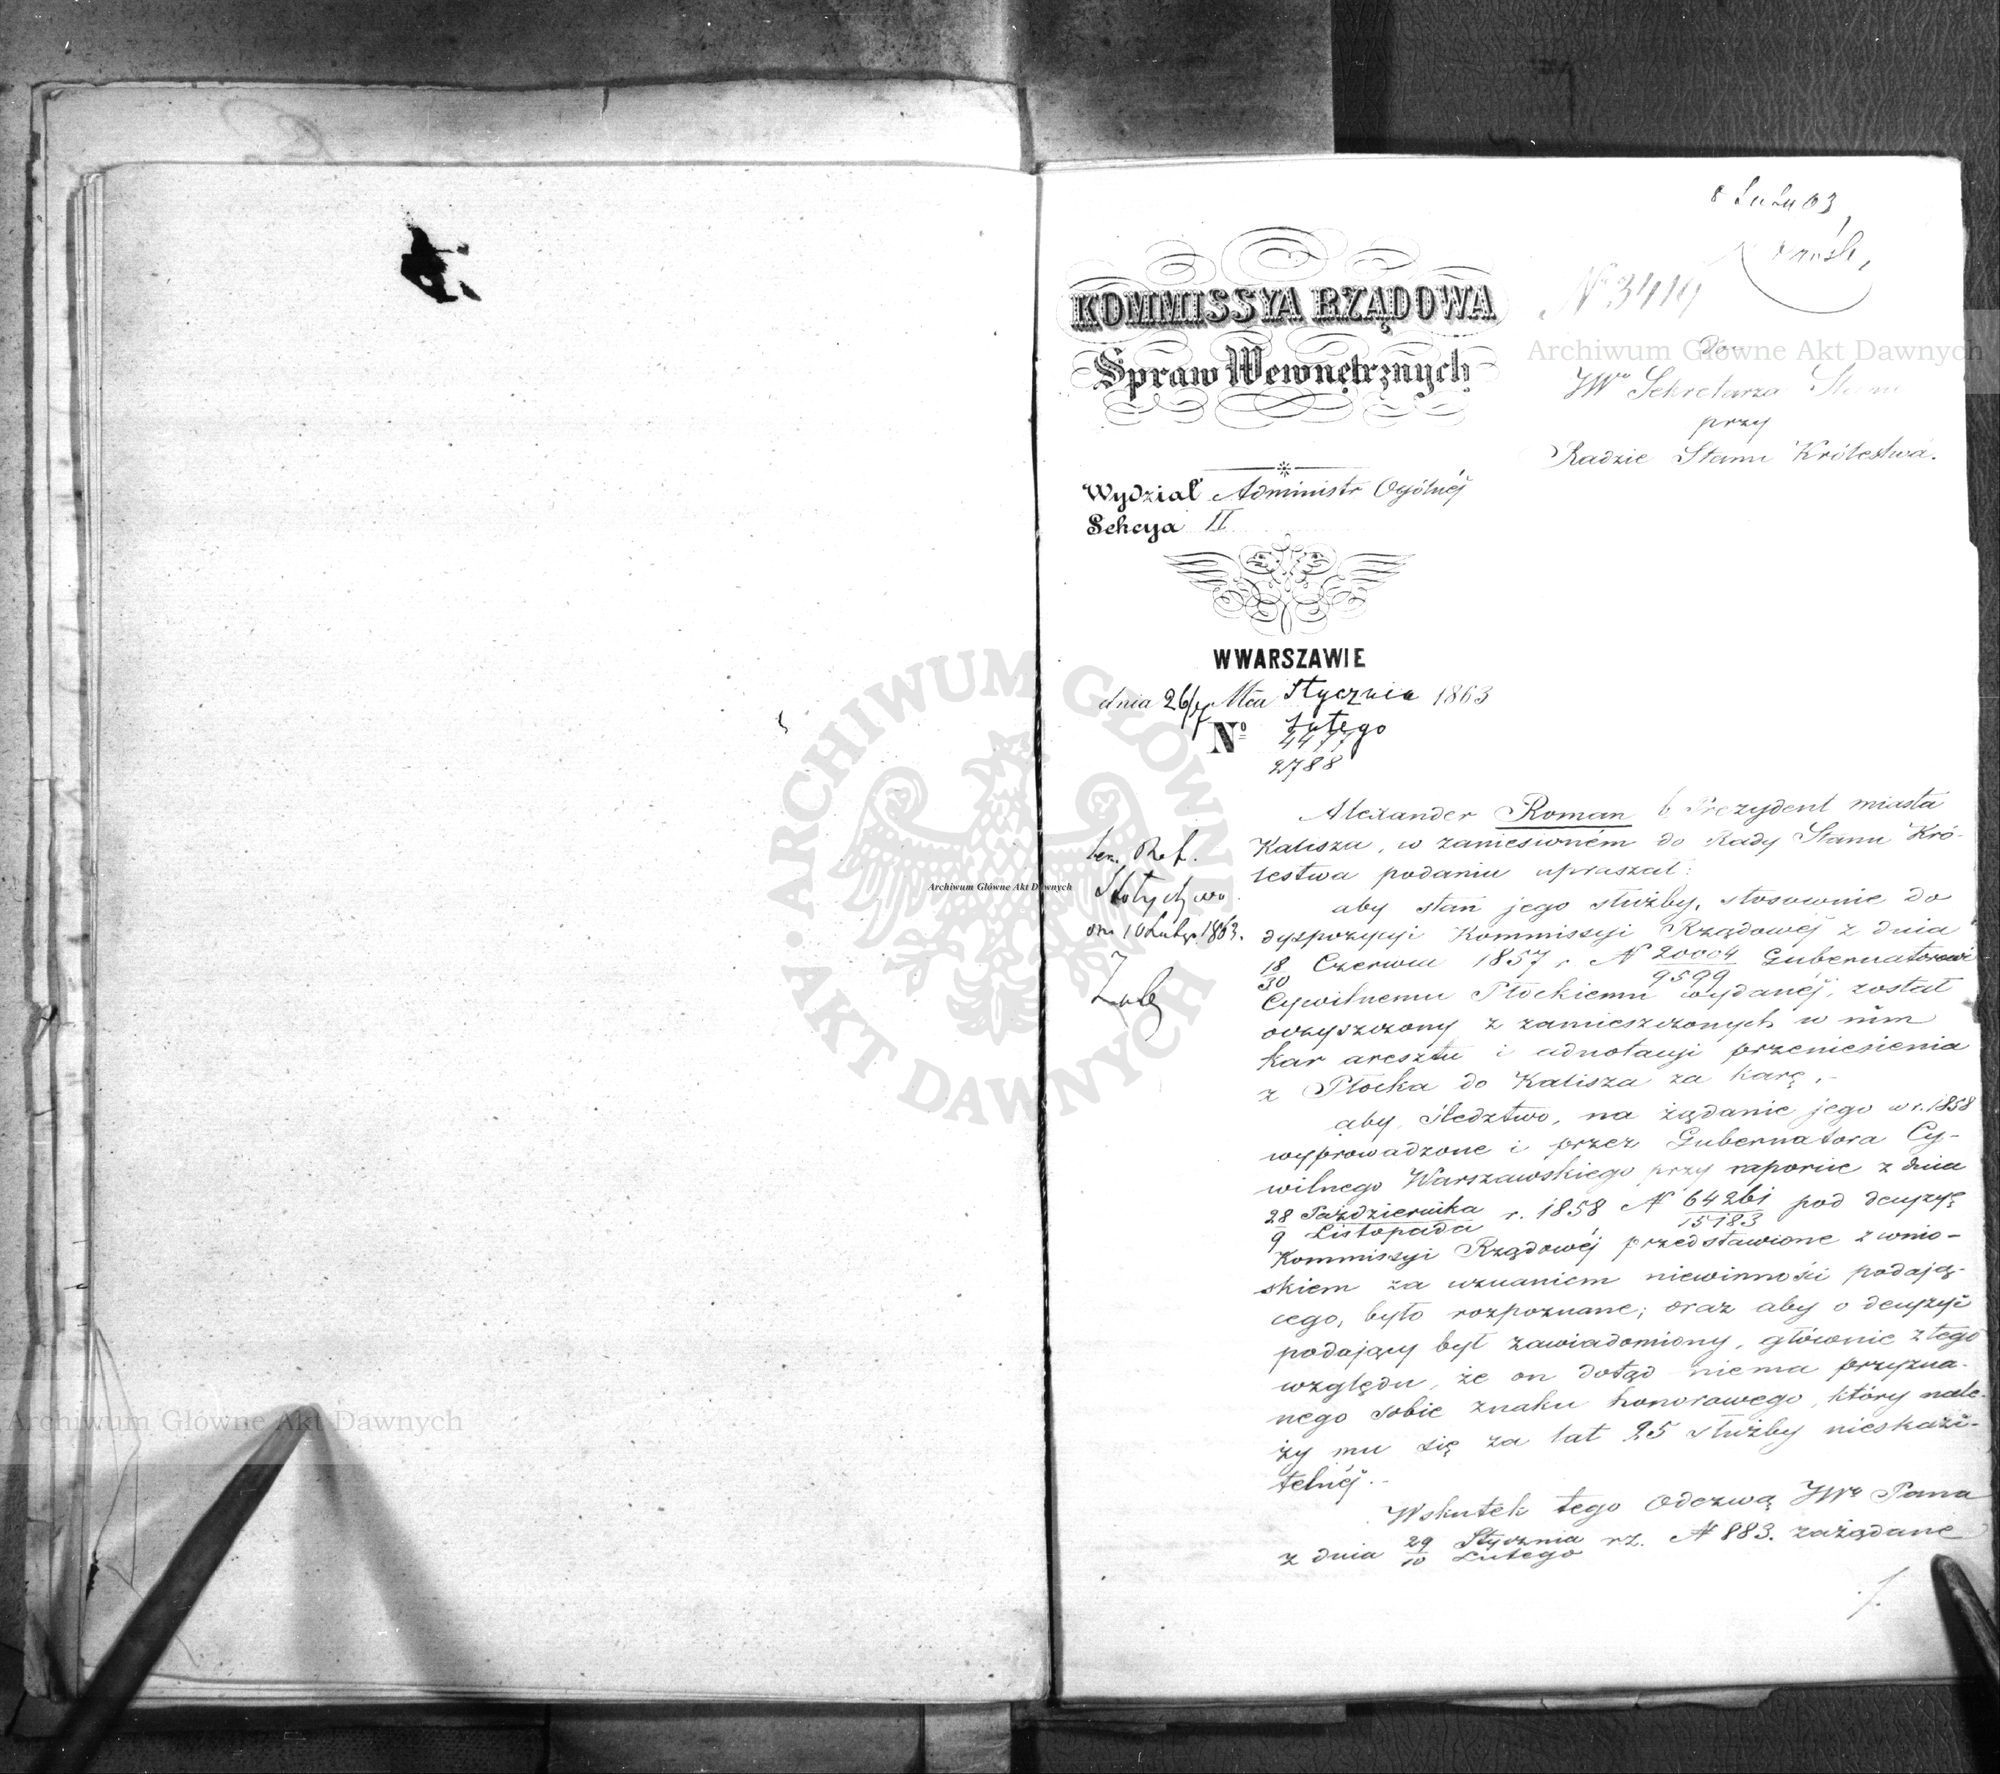 8 Lut 63
N 3419
KOMMISSYA RZĄDOWA
Spraw Wewnętrznych
do
JWo Sekretarza Stanu
przy
Radzie Stanu Królestwa.
Wydział Administr Ogólnéj
Sekcya II
W WARSZAWIE
dnia 26/7 Mca Stycznia 1863
Lutego
No 4477
2788
Alexander Roman b Prezydent miasta
Kalisza, w zaniesioném do Rady Stanu Kró-
lestwa podaniu upraszał:
aby stan jego służby, stosownie do
dyspozycyi Kommissyi Rządowéj z dnia
18/30 Czerwca 1857 r N 20004/9599 Gubernatorowi
Cywilnemu Płockiemu wydanéj, został
oczyszczony z zamieszczonych w nim
kar aresztu i adnotacyi przeniesienia
z Płocka do Kalisza za karę,-
aby śledztwo, na żądanie jego w r. 1858
wyprowadzone i przez Gubernatora Cy-
wilnego Warszawskiego przy raporcie z dnia
28 Października / 9 Listopada r. 1858 N 64261/15183 pod decyzyę
Kommissyi Rządowéj przedstawione z wnio-
skiem za uznaniem niewinności podają-
cego, było rozpoznane; oraz aby o decyzyi
podający był zawiadomiony, głównie z tego
względu, że on dotąd niema przyzna-
nego sobie znaku honorowego, który nale-
ży mu się za lat 25 służby nieskazi-
telnéj.-
Wskutek tego Odezwą JWo Pana
z dnia 29 Stycznia / 10 Lutego rz. N 883. zażądane
Ref.
1863.
Archiwum Główne Akt Dawnych
Archiwum Główne Akt Dawnych
Archiwum Główne Akt Dawnych
ARCHIWUM GŁÓWNE AKT DAWNYCH